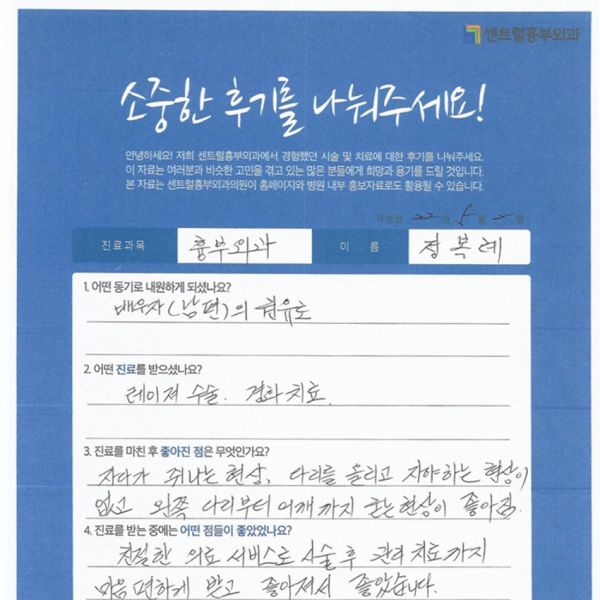 센트럴흉부외과
소중한 후기를 나눠주세요!
안녕하세요! 저희 센트럴흉부외과에서 경험했던 시술 및 치료에 대한 후기를 나눠주세요.
이 자료는 여러분과 비슷한 고민을 겪고 있는 많은 분들에게 희망과 용기를 드릴 것입니다.
본 자료는 센트럴흉부외과의원이 홈페이지와 병원 내부 홍보자료로도 활용될 수 있습니다.
작성일 22 년 5 월 2 일
진료과목 흉부외과 이 름 정복례
1. 어떤 동기로 내원하게 되셨나요?
배우자(남편)의 권유로
2. 어떤 진료를 받으셨나요?
레이져 수술. 경화치료.
3. 진료를 마친 후 좋아진 점은 무엇인가요?
자다가 쥐나는 현상, 다리를 올리고 자야하는 현상이
없고 왼쪽 다리부터 어깨까지 굳는현상이 좋아짐.
4. 진료를 받는 중에는 어떤 점들이 좋았었나요?
친절한 의료 서비스로 시술 후 관리 치료까지
마음 편하게 받고 좋아져서 좋았습니다.